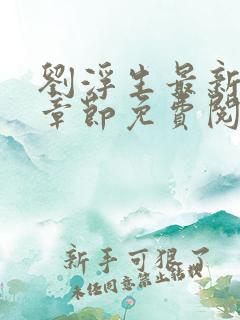 劉浮生最新
章節免費閱
新手可狠了
未經同意禁止轉載